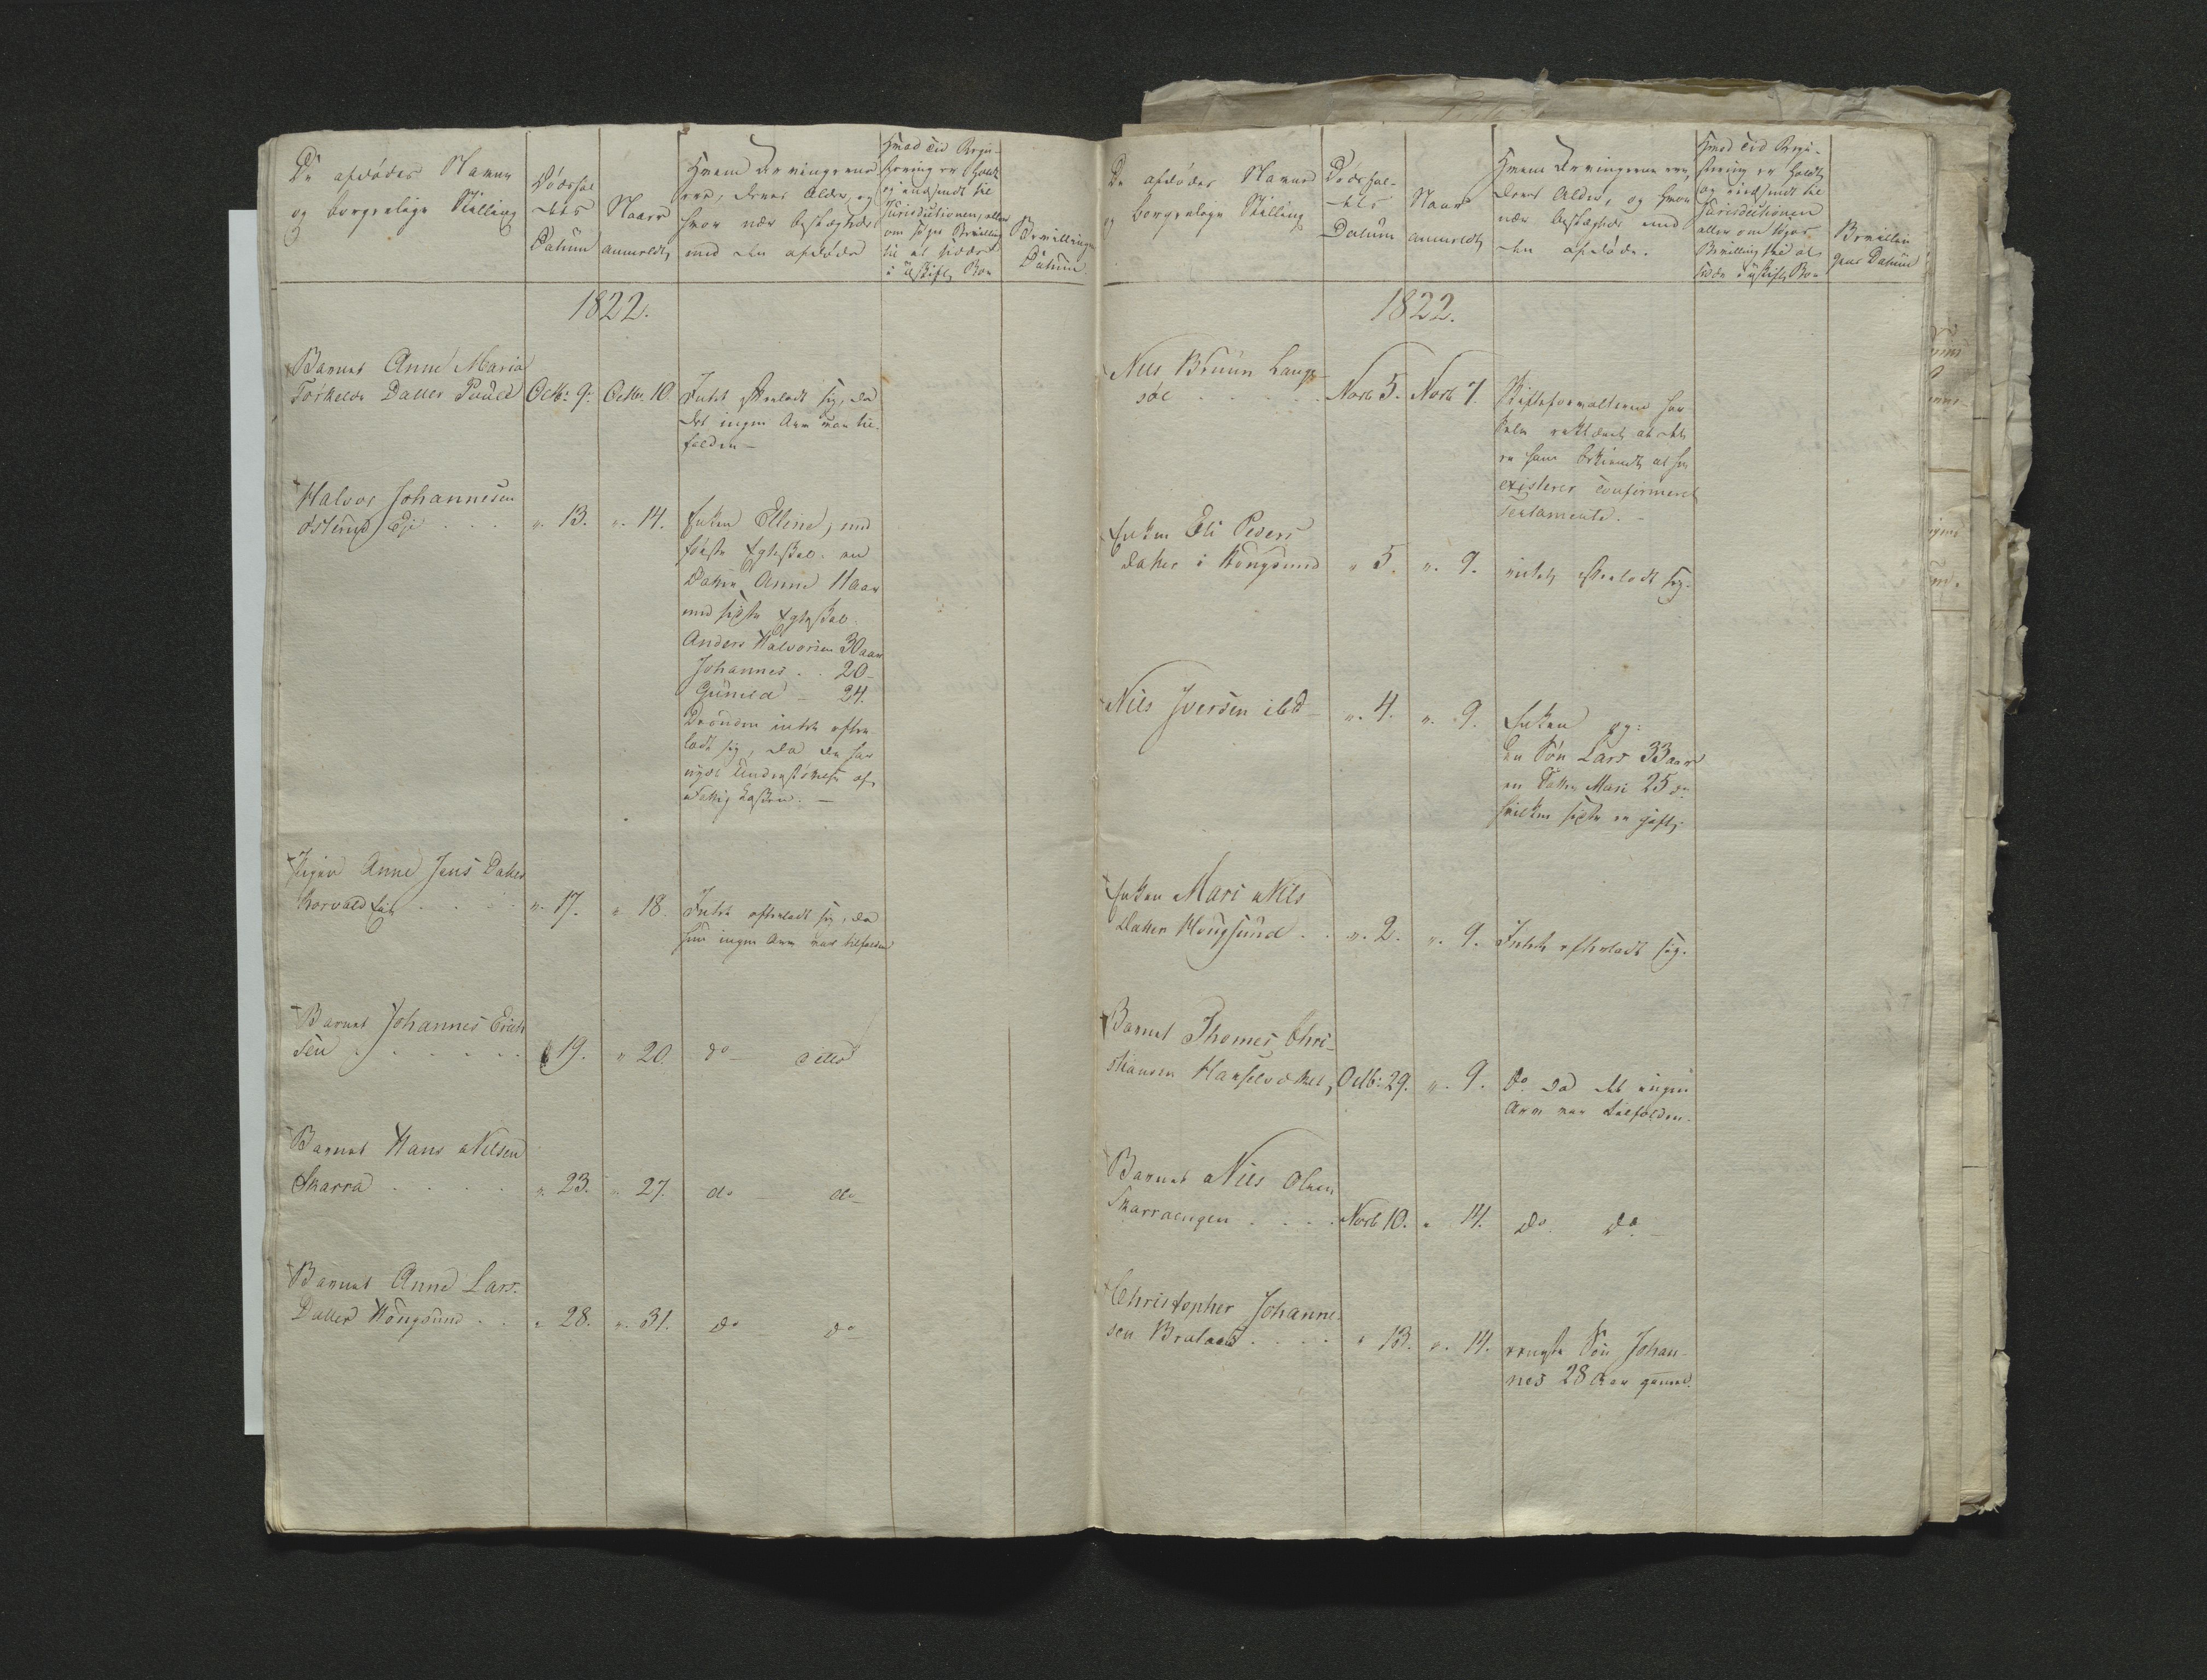 De afdødes Navne
og borgerlige Stilling
Dødsfal
dets
Datum
Naar
anmeldt
Hvem Arvingerne
ere, deres Alder, og
hvor nær beslægtede
med den afdøde
Hvad Tid Regi-
strering er holdt
og indsendt til
Jurisdictionen, eller
om søges Bevilling
til at sidde
i uskiftet Boe
Bevillingens
Datum
1822.
Barnet Anne Maria
Torkelds Datter
Octb: 9.
Octbr. 10.
Intet efterladt sig, da
det ingen Arv var til-
falden
Halvor Johannesen
" 13.
" 14.
Enken Elline, med
første Egteskab en
Datter Anne
med sidste Egteskab
Anders Halvorsen 30 aar
Johannes . . 20 -
Gunild - 24.
intet efter-
ladt sig, da de har
nydt Understøttelse af
Fattig Kassen. -
Pigen Anne Jens Datter
" 17.
" 18.
Intet efterladt sig, da
hun ingen Arv var tilfalden
Barnet Johannes Erich
sen . . . . . .
19.
" 20.
do - ditto
Barnet Hans Nilsen
Skarra . . . .
" 23.
" 27.
do - do
Barnet Anne Lars
Datter Hougsund . .
" 28.
" 31.
do - do
De afdødes Navne
og borgerlige Stilling
Dødsfal-
dets
Datum
Naar
anmeldt
Hvem Arvingerne ere,
deres Alder, og hvor
nær beslægtede med
den afdøde.
Hvad Tid Regi-
strering er holdt
og indsendt til
Jurisdictionen
eller om søges
Bevilling til at
sidde i uskiftet Boe
Bevillin
gens Datum
1822.
Nils Bruun Lange-
søe . . . . .
Novb 5.
Novb 7.
Skifteforvalteren har
selv erklæret at det
er ham bekiendt at her
existerer confirmeret
Testamente. -
Enken Eli Peders
Datter i Hougsund
" 5.
" 9.
intet efterladt sig.
Nils Iversen ibid
" 4.
" 9.
Enken og:
En Søn Lars 33 aar
en Datter Mari 25 do
hvilken sidste er gift
Enken Mari Nils
Datter Hougsund . .
" 2.
" 9.
Intet efterladt sig.
Barnet Thomes Chri-
stiansen
Octb: 29.
" 9.
do. da det ingen
Arv var tilfalden.
Barnet Nils Olsen
Skarraengen . . . .
Novb 10.
" 14.
do. do. -
Christopher Johanne-
sen . . . .
" 13.
" 14.
Søn Johan-
nes 28 Aar gammel.